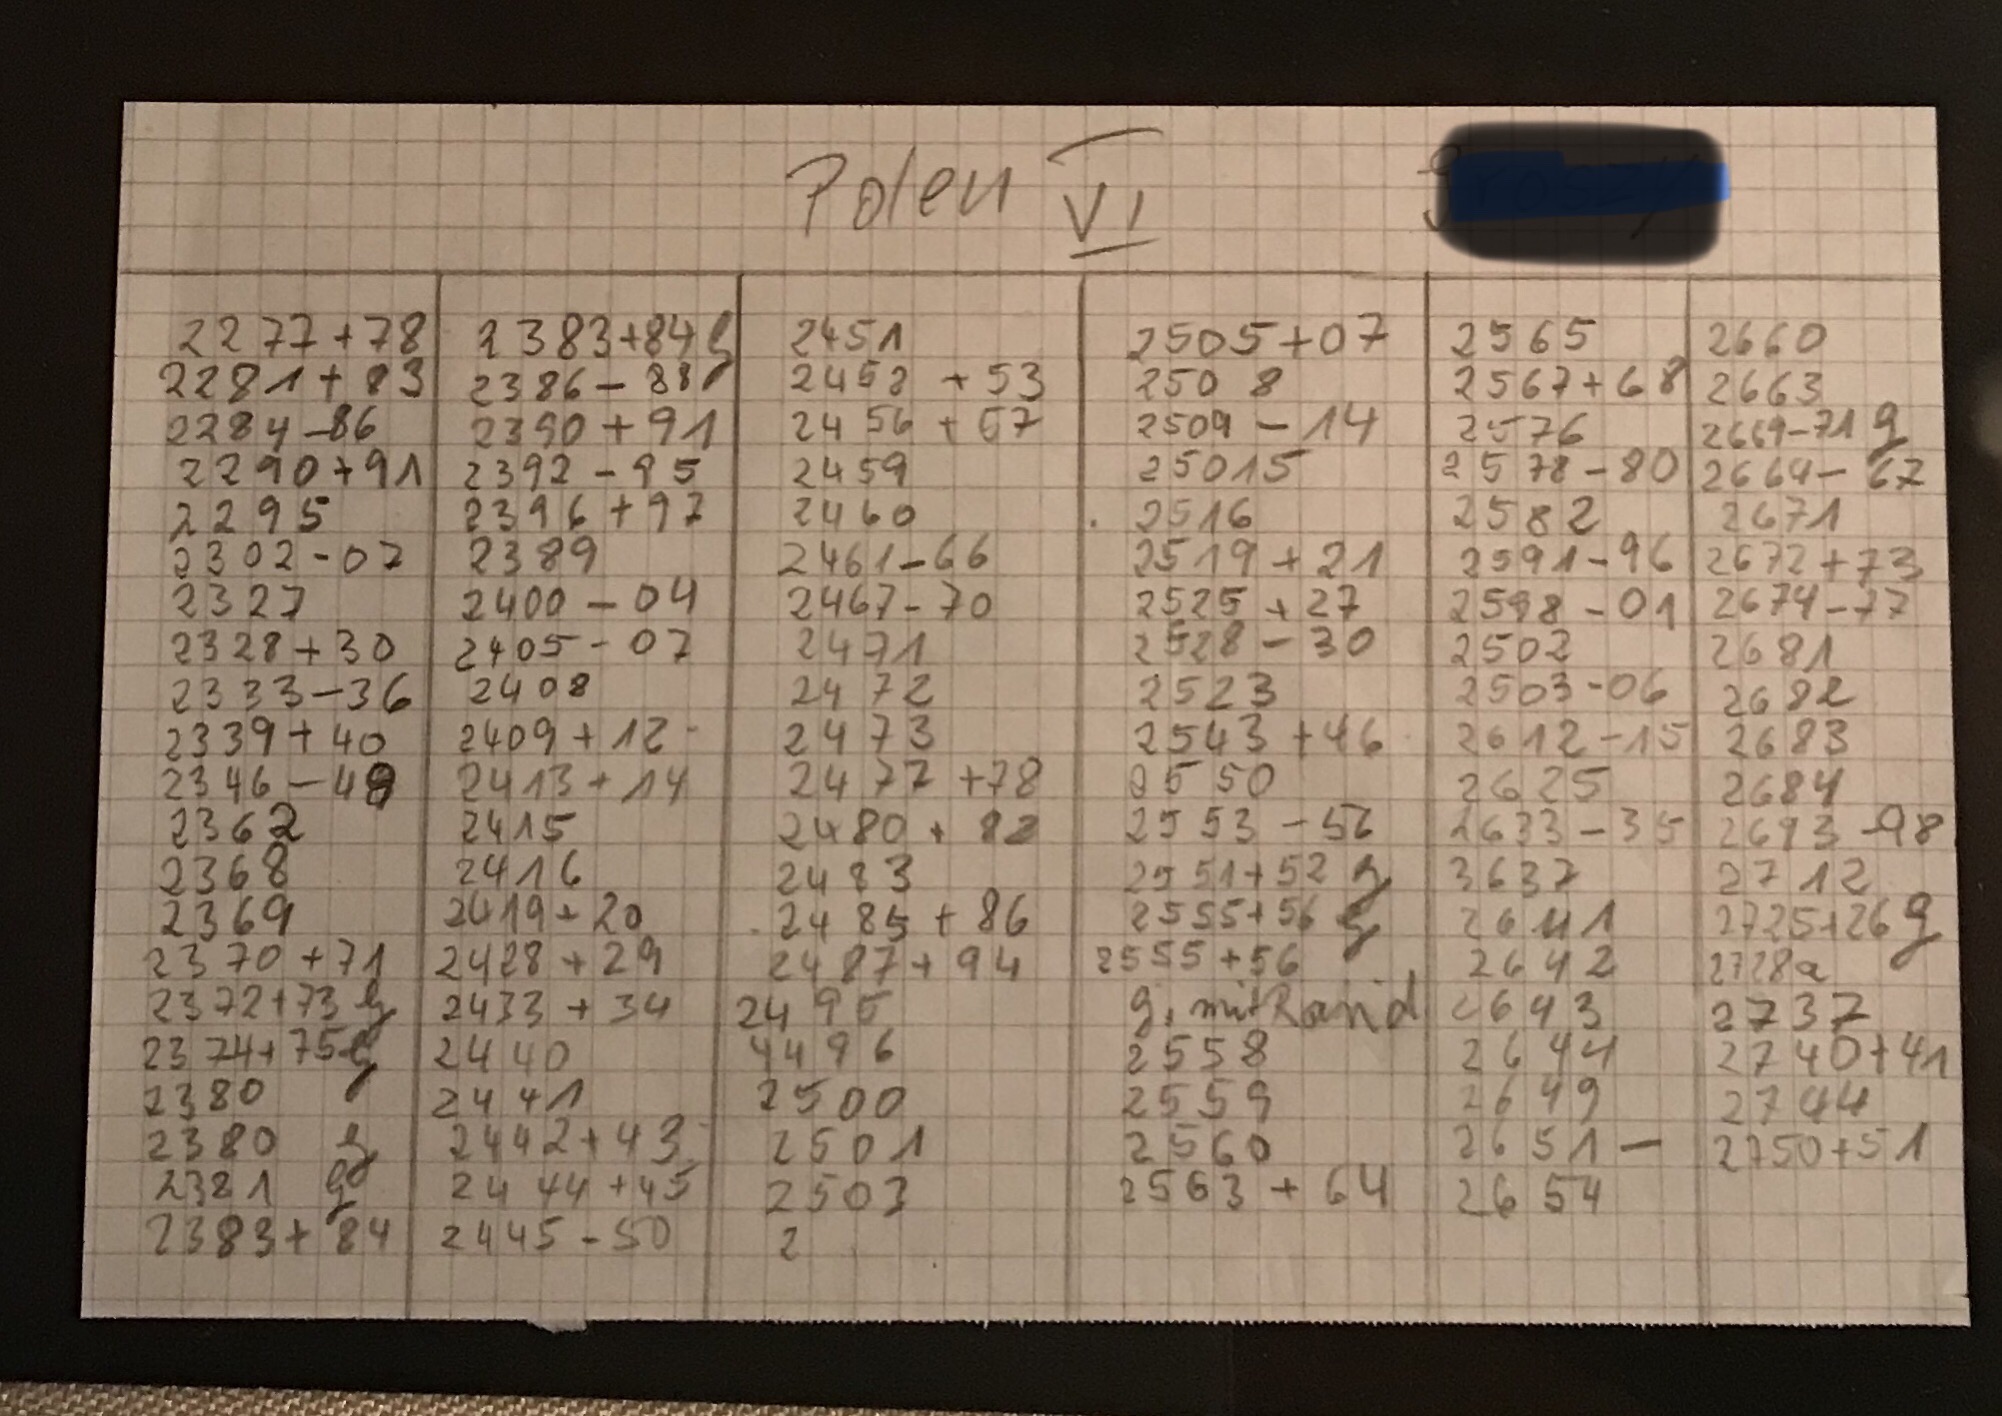 Polen VI
2277+78
2281+83
2284-86
2290+91
2295
2302-07
2327
2328+30
2333-36
2339+40
2346-49
2362
2368
2369
2370+71
2372+73 g
2374+75 g
2380
2380 g
2381 g
2383+84
2383+84 g
2386-88
2390+91
2392-95
2396+97
2389
2400-04
2405-07
2408
2409+12
2413+14
2415
2416
2419+20
2428+29
2433+34
2440
2441
2442+43
2444+45
2445-50
2451
2452+53
2456+57
2459
2460
2461-66
2467-70
2471
2472
2473
2477+78
2480+82
2483
2485+86
2487+94
2495
4496
2500
2501
2503
2
2505+07
2508
2509-14
25015
2516
2519+21
2525+27
2528-30
2523
2543+46
2550
2553-56
2551+52 g
2555+56 g
2555+56
g. mit Rand
2558
2559
2560
2563+64
2565
2567+68
2576
2578-80
2582
2591-96
2598-01
2502
2503-06
2612-15
2625
2633-35
3637
2641
2642
2643
2644
2649
2651-
2654
2660
2663
2669-71 g
2664-67
2671
2672+73
2674-77
2681
2682
2683
2684
2693-98
2712
2725+26 g
2728a
2737
2740+41
2744
2750+51